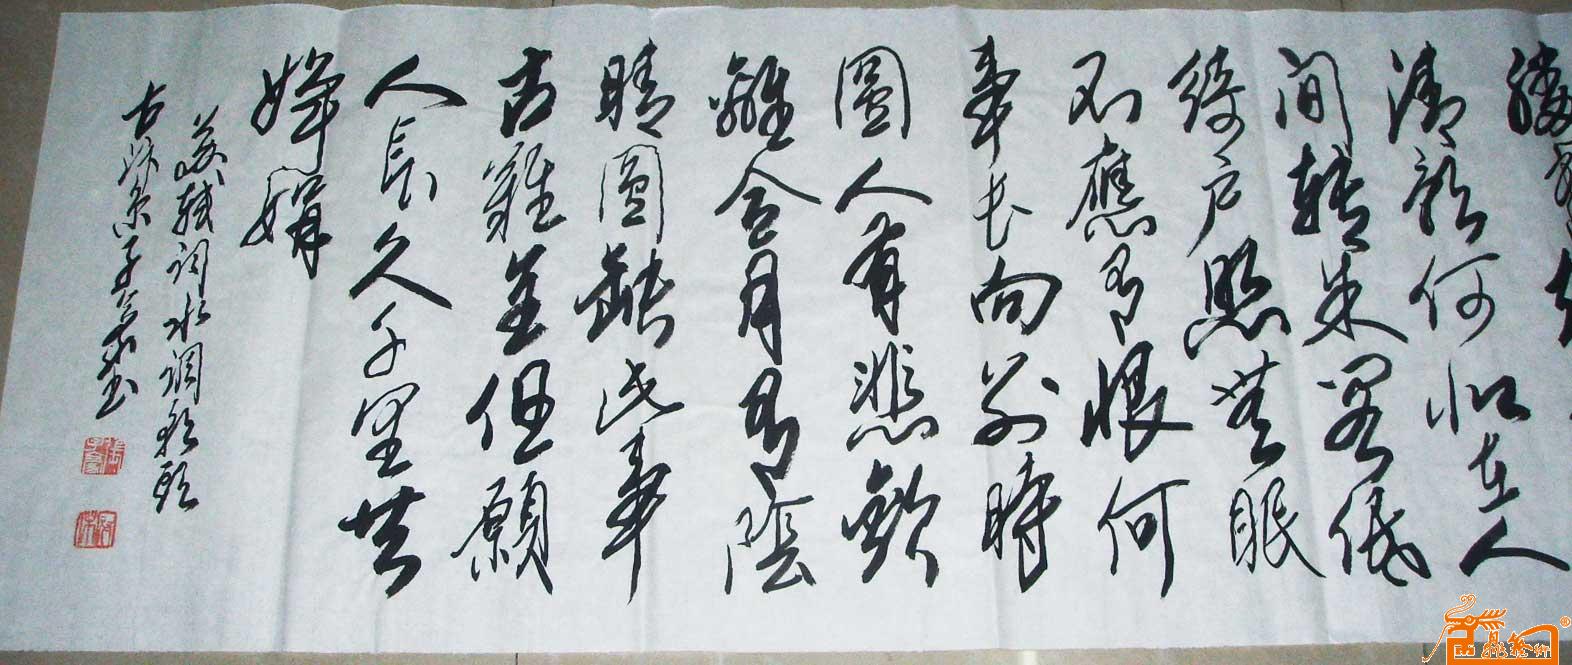 清影何似在人
間轉朱閣低
綺户照無眠
不應有恨何
事长向别時
圓人有悲歡
離合月有陰
晴圓缺此事
古難全但願
人長久千里共
嬋娟
蘇軾詞水調歌頭
古 子豪書